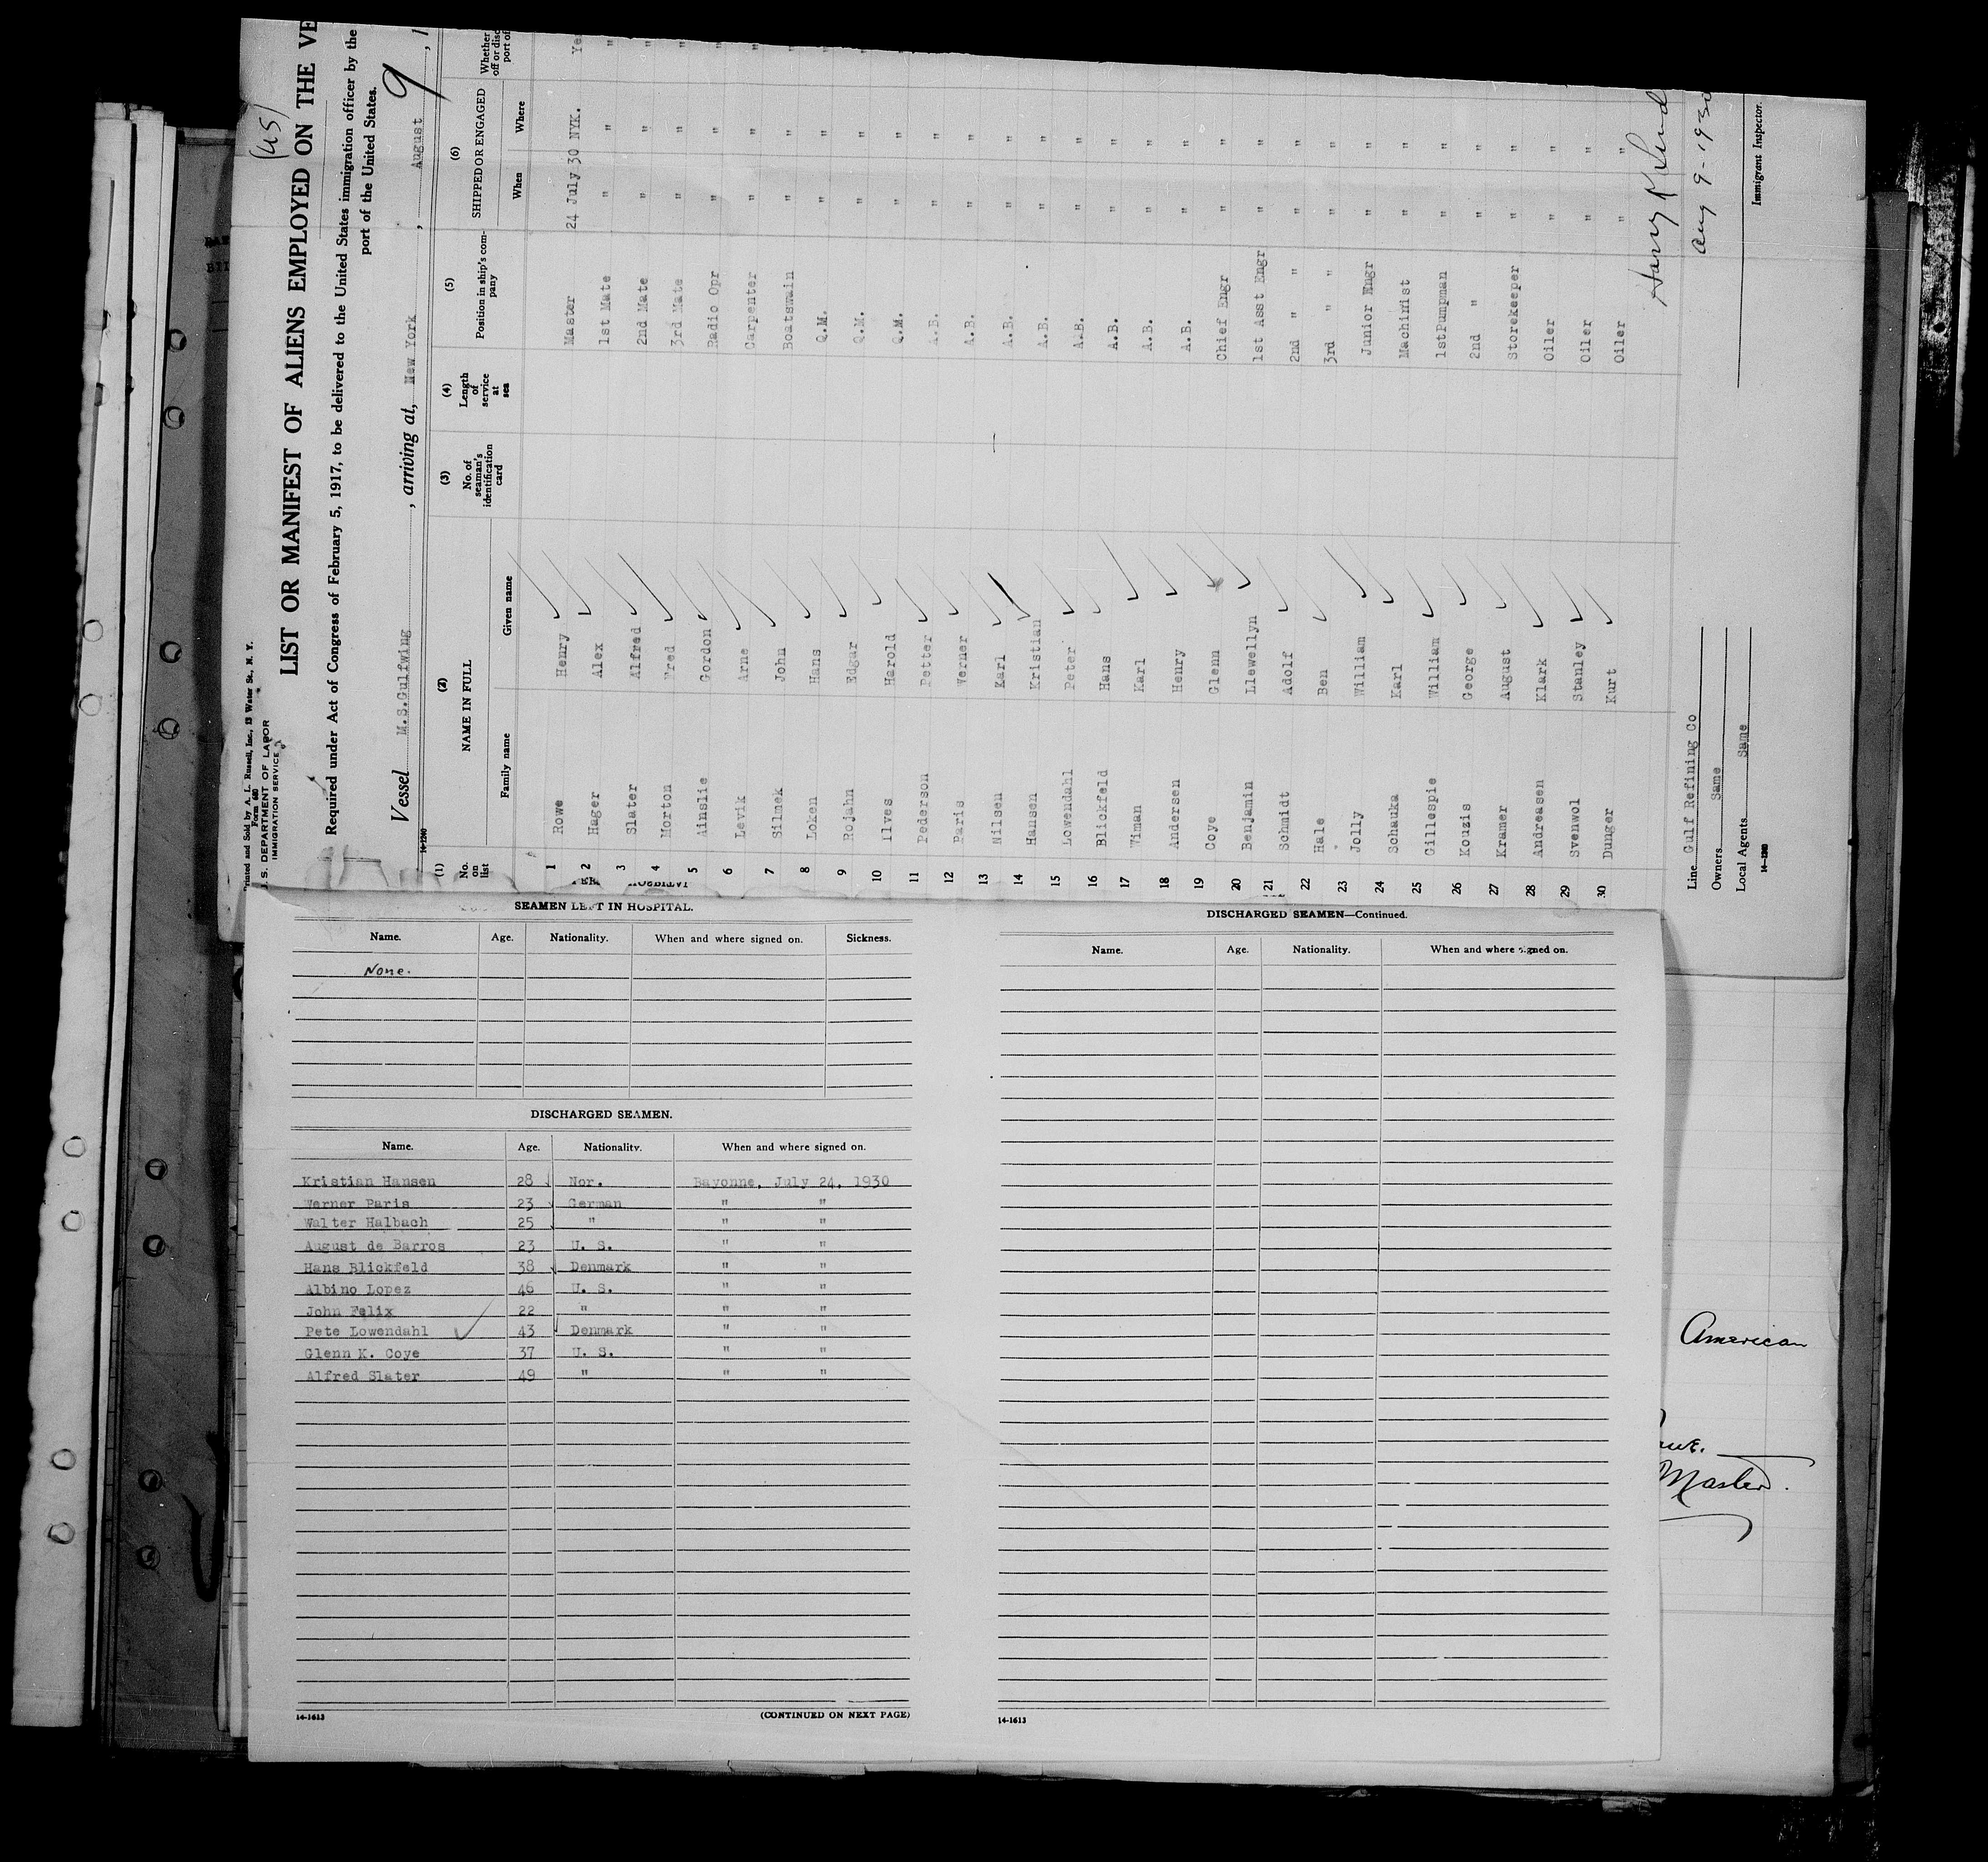 (US)
Printed and Sold by A. L. Russell, Inc., 13 Water St., N. Y.
Form 680
U. S. DEPARTMENT OF LABOR
IMMIGRATION SERVICE
LIST OR MANIFEST OF ALIENS EMPLOYED ON THE VE
Required under Act of Congress of February 5, 1917, to be delivered to the United States immigration officer by the
port of the United States.
Vessel M.S.Gulfwing, arriving at, New York, August 9, 1
14-1240
(1) (2) (3) (4) (5) (6)
No. on list NAME IN FULL No. of seaman's identification card Length of service at sea Position in ship's company SHIPPED OR ENGAGED Whether
off or disc
port of
Family name Given name When Where
1 Rowe Henry Master 24 July 30 NYK. Yes
2 Hager Alex 1st Mate " " "
3 Slater Alfred 2nd Mate " " "
4 Morton Fred 3rd Mate " " "
5 Ainslie Gordon Radio Opr " " "
6 Levik Arne Carpenter " " "
7 Silmek John Boatswain " " "
8 Loken Hans Q.M. " " "
9 Rojahn Edgar Q.M. " " "
10 Ilves Harold Q.M. " " "
11 Pederson Petter A.B. " "
12 Paris Verner A.B. " "
13 Nilsen Karl A.B. " "
14 Hansen Kristian A.B. " "
15 Lowendahl Peter A.B. " "
16 Blickfeld Hans A.B. " "
17 Viman Karl A.B. " "
18 Andersen Henry A.B. " "
19 Coye Glenn Chief Engr " "
20 Benjamin Llewellyn 1st Asst Engr " "
21 Schmidt Adolf 2nd " " " "
22 Hale Ben 3rd " " " "
23 Jolly William Junior Engr " "
24 Schauka Karl Machinist " "
25 Gillespie William 1stPumpman " "
26 Kouzis George 2nd " " "
27 Kramer August Storekeeper " "
28 Andreasen Klark Oiler " "
29 Svenwol Stanley Oiler " "
30 Dunger Kurt Oiler " "
Line Gulf Refining Co
Owners Same
Local Agents Same
14-1240
Harry
Aug 9-1930
Immigrant Inspector.
SEAMEN LEFT IN HOSPITAL.
Name. Age. Nationality. When and where signed on. Sickness.
None.
DISCHARGED SEAMEN.
Name. Age. Nationality. When and where signed on.
Kristian Hansen 28 Nor. Bayonne, July 24, 1930
Werner Paris 23 German " "
Walter Halbach 25 " " "
August de Barros 23 U. S. " "
Hans Blickfeld 38 Denmark " "
Albino Lopez 46 U. S. " "
John Felix 22 " " "
Pete Lowendahl 43 Denmark " "
Glenn K. Coye 37 U. S. " "
Alfred Slater 49 " " "
14-1613
(CONTINUED ON NEXT PAGE)
DISCHARGED SEAMEN—Continued.
Name. Age. Nationality. When and where signed on.
14-1613
American
Master.